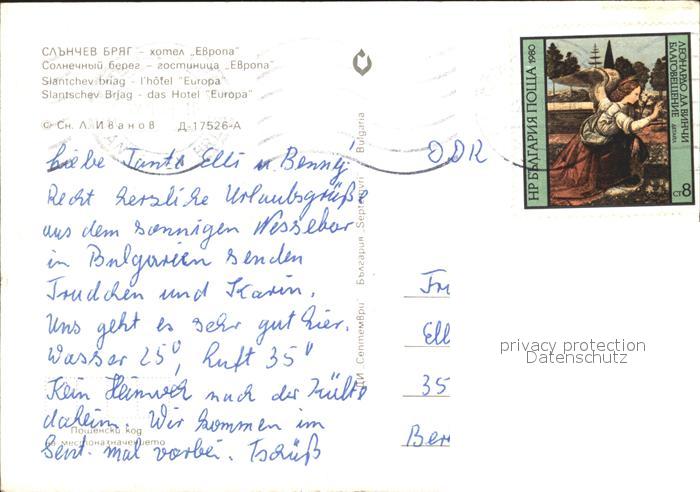 СЛЪНЧЕВ БРЯГ – хотел „Европа"
Солнечный берег – гостиница „Европа"
Slantchev briag - l'hôtel "Europa"
Slantschev Brjag - das Hotel "Europa"
© Сн. Л. Иванов Д-17526-А
Liebe Tante Elli u. Benny!
Recht herzliche Urlaubsgrüße
aus dem sonnigen Nessebar
in Bulgarien senden
Trudchen und Karin.
Uns geht es sehr gut hier.
Wasser 25°, Luft 35°
Kein Heimweh nach der Kälte
daheim. Wir kommen im
Sept. mal vorbei. Tschüß
Пощенски код
на местоназначението
ДИ Септември България "Septemvri" Bulgaria
DDR
Fr
Ell
35
Ber
privacy protection
Datenschutz
НР БЪЛГАРИЯ ПОЩА 1980
ЛЕОНАРДО ДА ВИНЧИ
БЛАГОВЕЩЕНИЕ
8 СТ